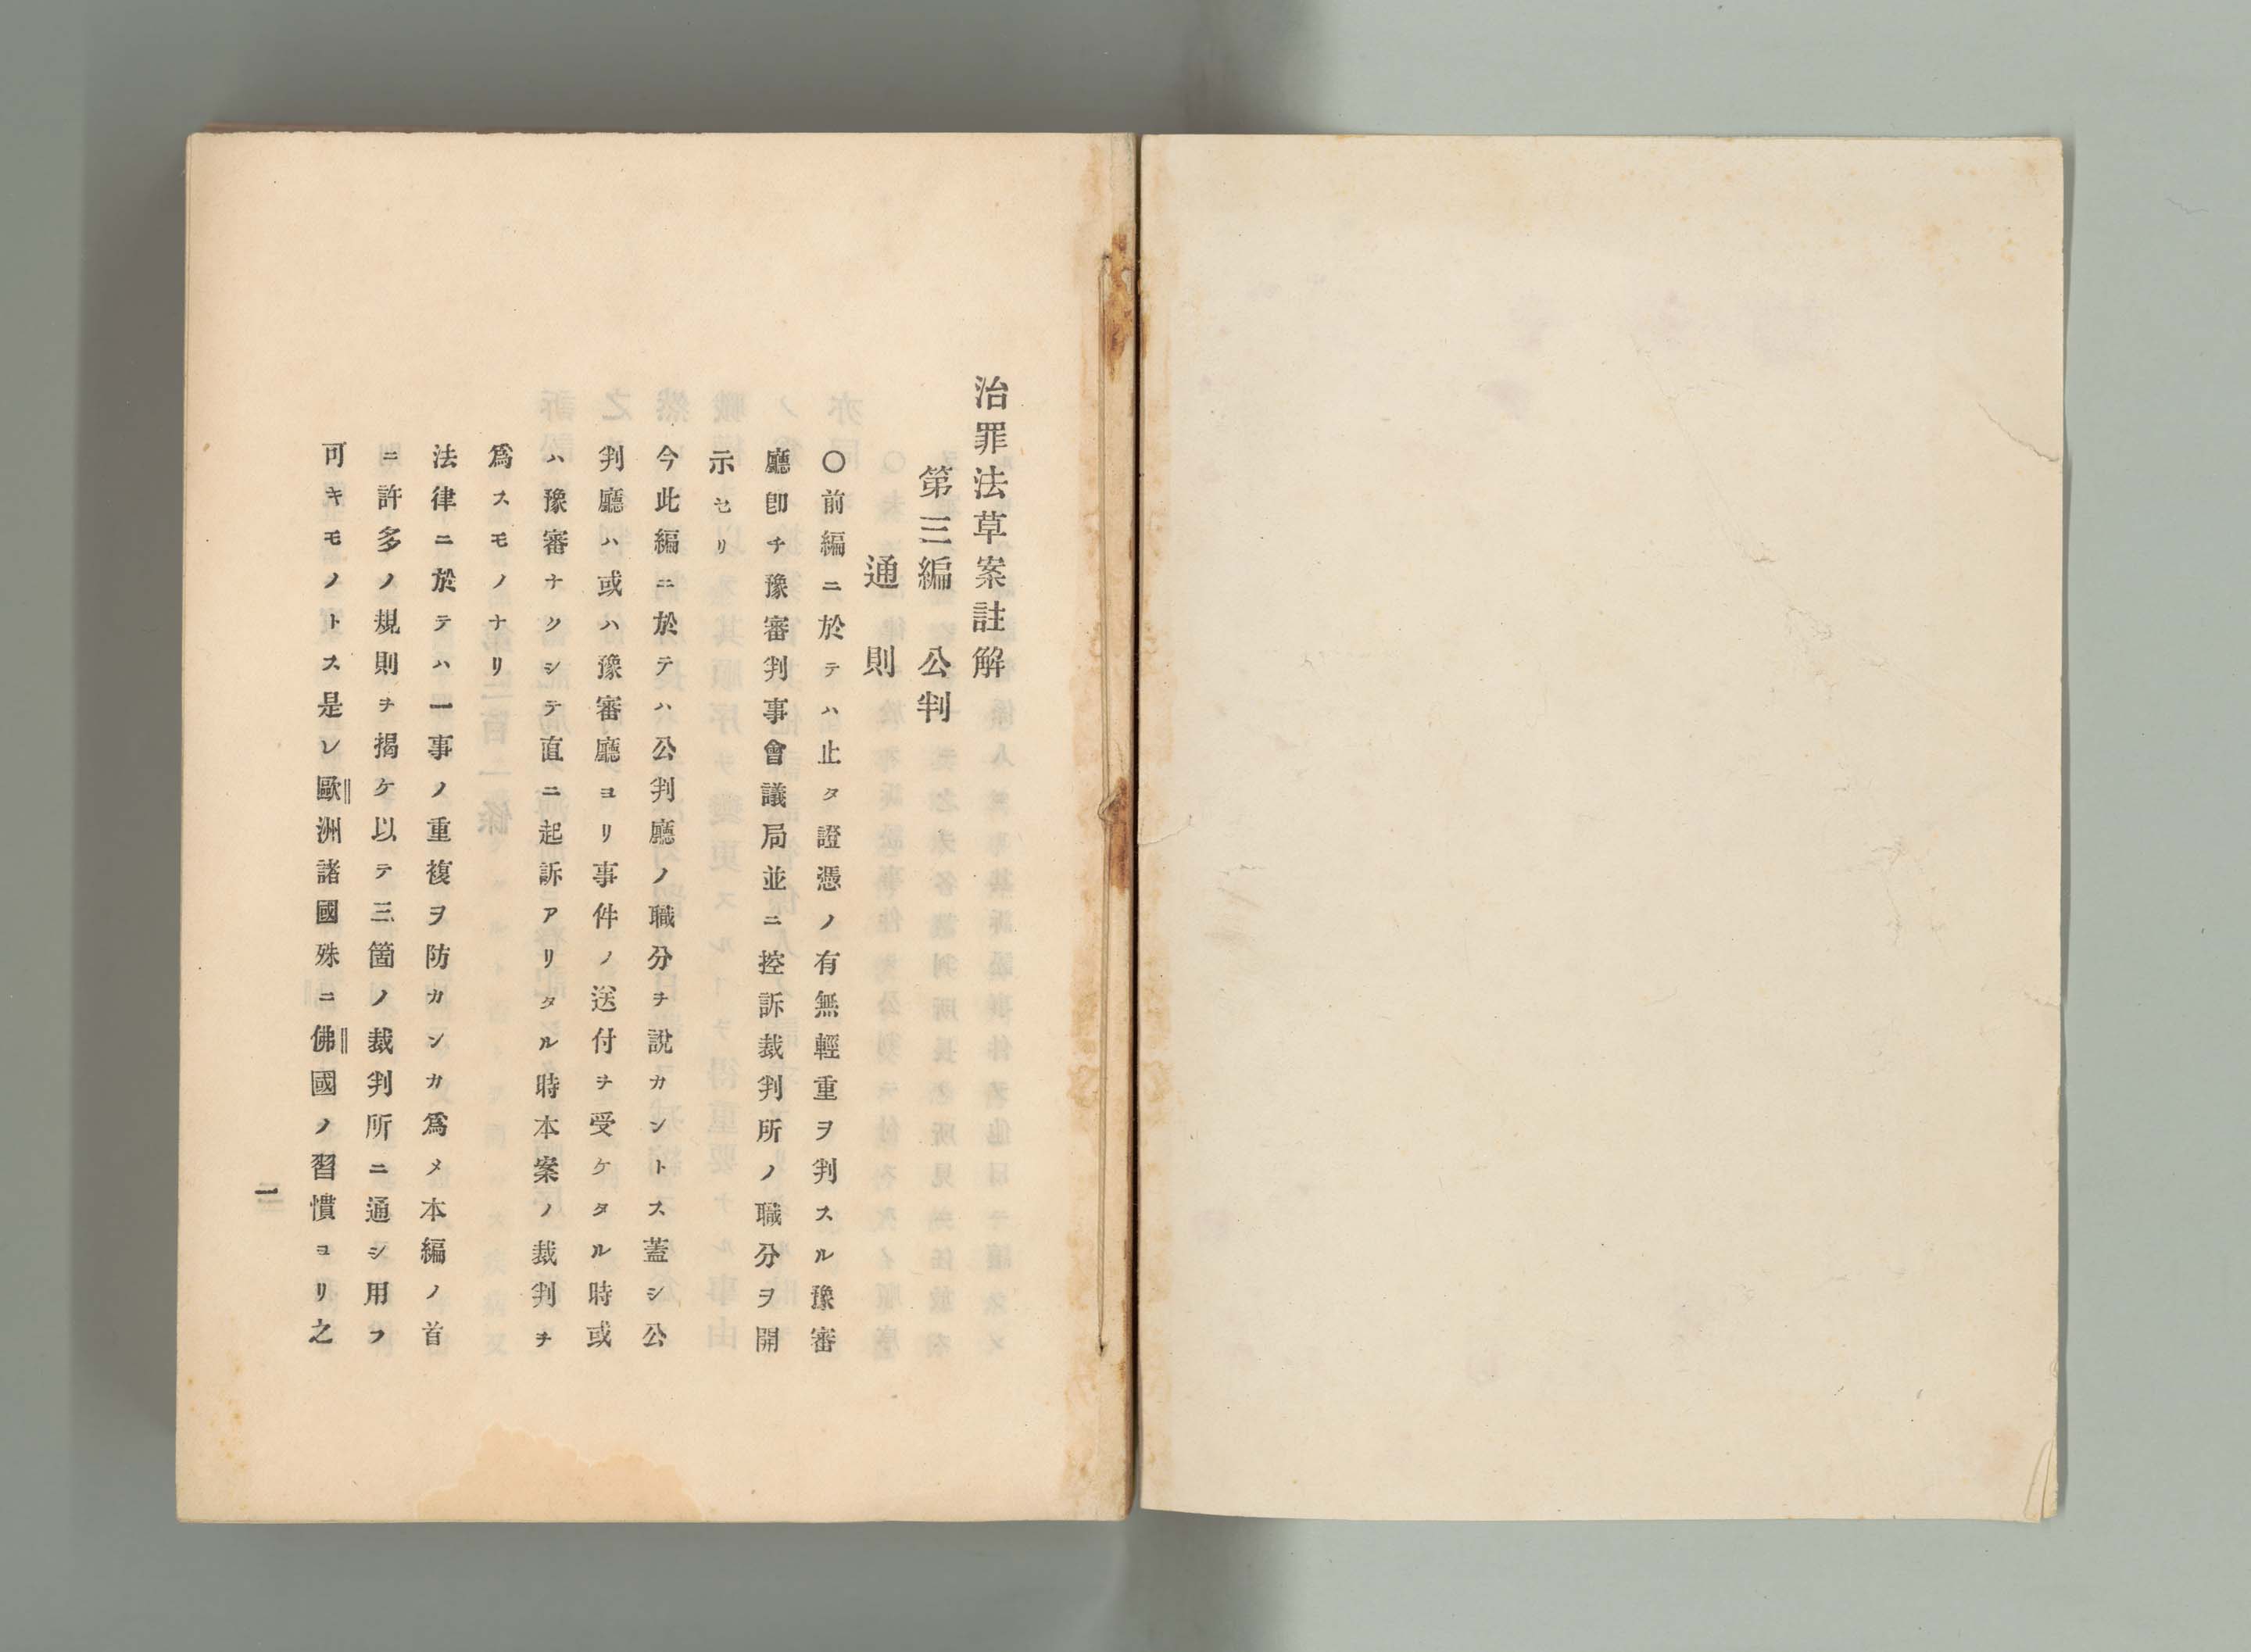 治罪法草案註解
第三編 公判
通則
〇前編ニ於テハ止タ證憑ノ有無輕重ヲ判スル豫審
廳卽チ豫審判事會議局並ニ控訴裁判所ノ職分ヲ開
示セリ
今此編ニ於テハ公判廳ノ職分ヲ說カントス蓋シ公
判廳ハ或ハ豫審廳ヨリ事件ノ送付ヲ受ケタル時或
ハ豫審ナクシテ直ニ起訴アリタル時本案ノ裁判ヲ
爲スモノナリ
法律ニ於テハ一事ノ重複ヲ防カンカ爲メ本編ノ首
ニ許多ノ規則ヲ揭ケ以テ三箇ノ裁判所ニ通シ用フ
可キモノトス是レ歐洲諸國殊ニ佛國ノ習慣ヨリ之
一